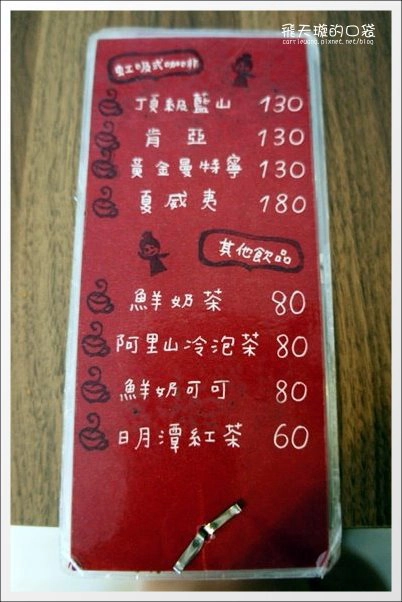 飛天璇的口袋
carriewang.pixnet.net/blog
虹吸式咖啡
頂級藍山 130
肯亞 130
黃金曼特寧 130
夏威夷 180
其他飲品
鮮奶茶 80
阿里山冷泡茶 80
鮮奶可可 80
日月潭紅茶 60